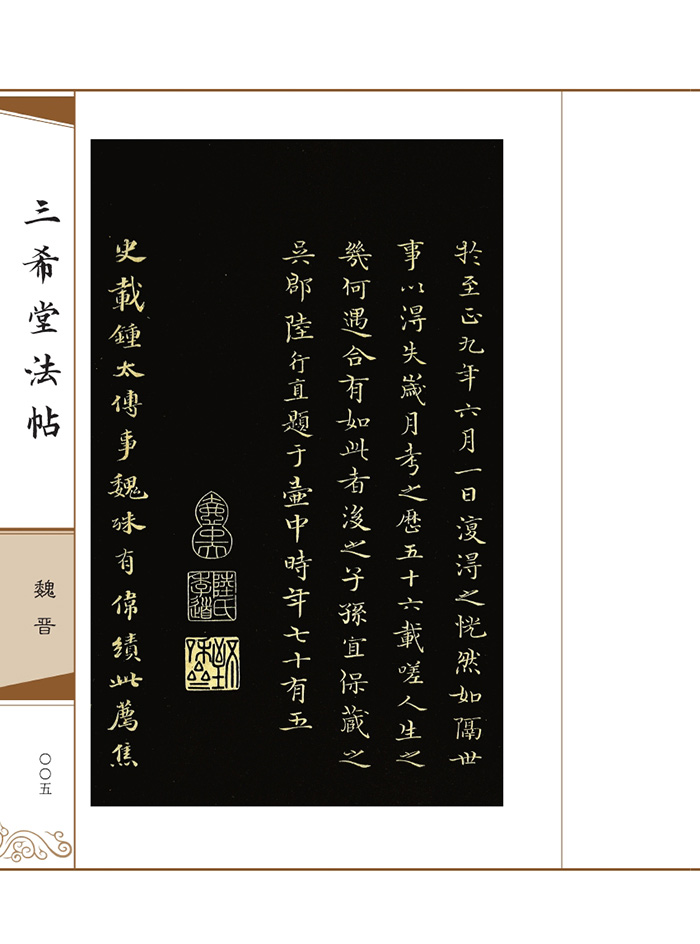 扵至正九年六月一日復得之恍然如隔世
事以得失歲月考之厯五十六載嗟人生之
幾何遇合有如此者後之子孫宜保藏之
吳郡陸行直題于壺中時年七十有五
陸氏季道
史載鍾太傅事魏殊有偉績此薦焦
三希堂法帖
魏晋
〇〇五